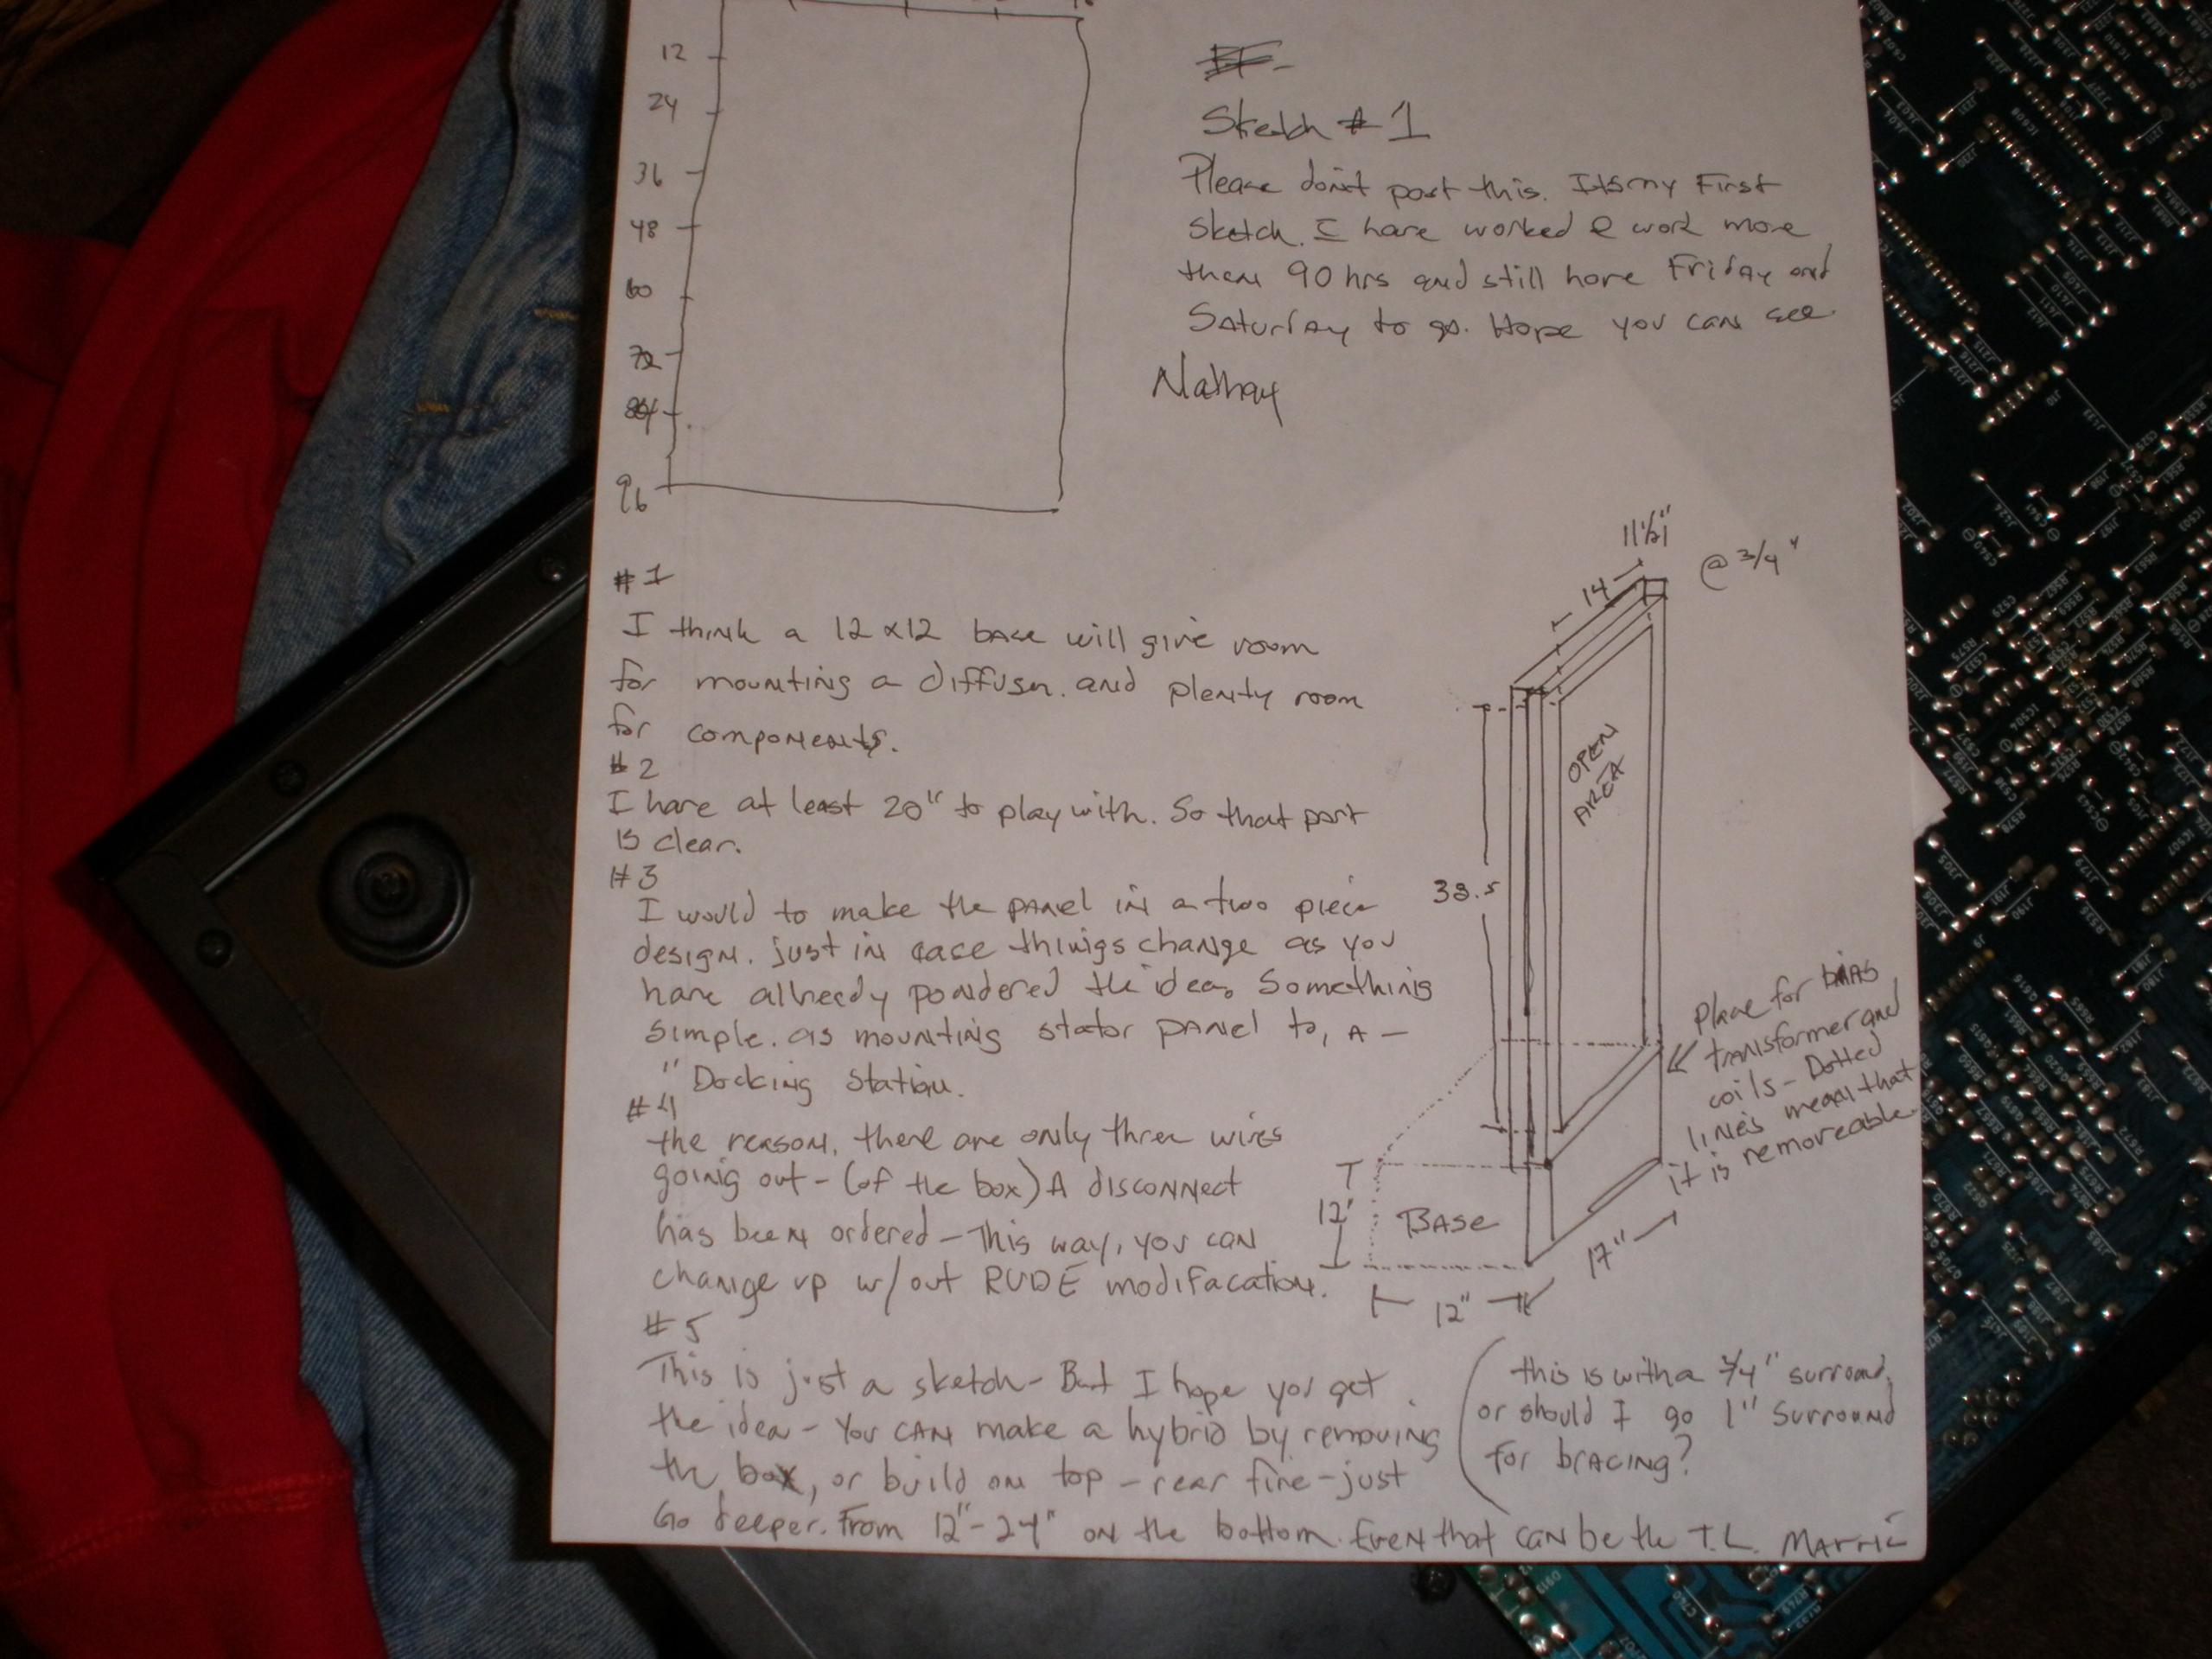 12
24
36
48
60
72
84
96
Sketch # 1
Please don't post this. Its my First
sketch. I have worked & work more
then 90 hrs and still have Friday and
Saturday to go. Hope you can see
Nathan
#1
I think a 12 x12 base will give room
for mounting a diffuser. and plenty room
for components.
#2
I have at least 20" to play with. So that part
is clear.
#3
I would to make the panel in a two piece
design. just in case things change as you
have allready pondered the idea. Something
simple. as mounting stator panel to, A -
"Docking Station.
#4
the reason, there are only three wires
going out - (of the box) A disconnect
has been ordered - This way, you can
change up w/out RUDE modifacation.
#5
This is just a sketch - But I hope you get
the idea - You can make a hybrid by removing
the box, or build on top - rear fire - just
Go deeper. From 12" - 24" on the bottom. Even that can be the T.L.
11 1/2"
14
@ 3/4"
OPEN
AREA
38.5
place for BIAS
transformer and
coils - Dotted
lines mean that
it is removeable
12"
BASE
17"
12"
this is with a 3/4" surround.
or should I go 1" Surround
for bracing?